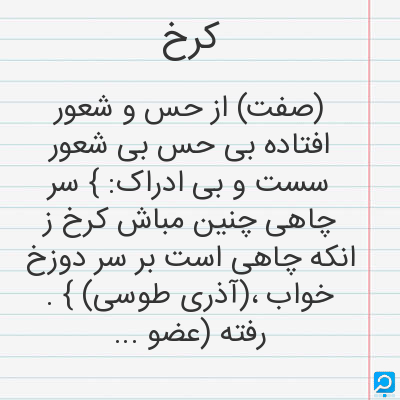 کرخ
(صفت) از حس و شعور
افتاده بی حس بی شعور
سست و بی ادراک: } سر
چاهی چنین مباش کرخ ز
انکه چاهی است بر سر دوزخ
خواب ،(آذری طوسی) } .
رفته (عضو ...